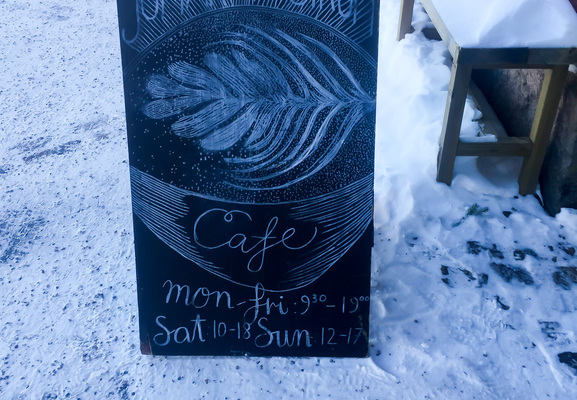 Cafe
mon-fri: 9³⁰-19⁰⁰
Sat 10-18 Sun: 12-17